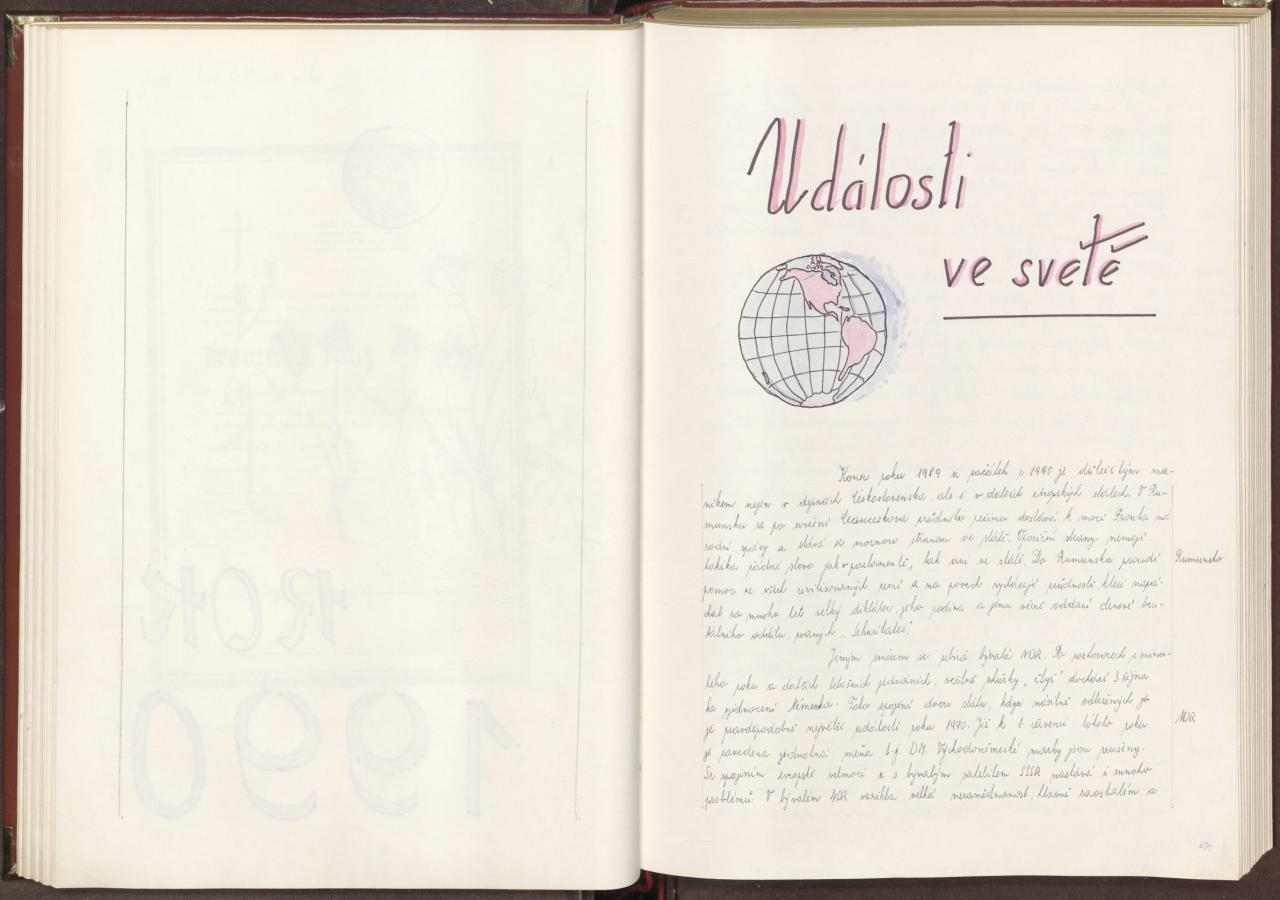 Události
ve světě
Konec roku 1989 a začátek r. 1990 je důležitým mez-
níkem nejen v dějinách Československa, ale i v dalších evropských státech. V Ru-
munsku se po svržení Ceauceskova zrůdného režimu dostává k moci Fronta ná
rodní spásy a stává se mocnou stranou ve státě. Opoziční strany nemají
takřka žádné slovo jak v parlamentě, tak ani ve státě. Do Rumunska proudí
Rumunsko
pomoc ze všech civilizovaných zemí a na povrch vycházejí zrůdnosti, které napá-
chal za mnoho let velký diktátor, jeho rodina a jemu věrně oddaní členové bru-
tálního oddílu, zvaných „Sekuritates".
Jiným směrem se ubírá bývalá NDR. Po rozhovorech z minu-
lého roku a dalších letošních jednáních, včetně schůzky „čtyř" dochází 3. října
ke sjednocení Německa. Toto spojení dvou států, kdysi násilně odtržených je
je pravděpodobně největší událostí roku 1990. Již k 1. červenci tohoto roku
NDR
je zavedena jednotná měna t.j. DM. Východoněmecké marky jsou zrušeny.
Se spojením evropské velmoci a s bývalým satelitem SSSR nastává i mnoho
problémů. V bývalém NDR vznikla velká nezaměstnanost, hlavně zaostalém a
ROK
1990